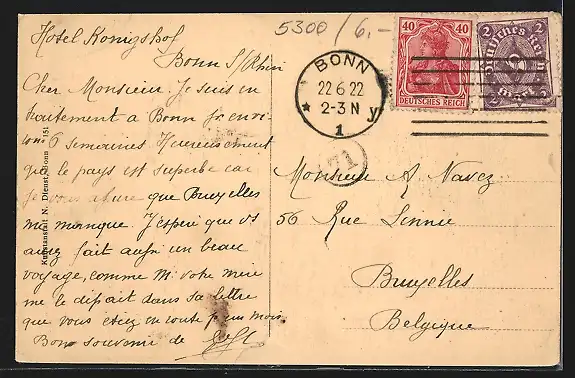 5300 / 6,-
Hotel Konigshof
Bonn S/Rhin
Cher Monsieur. Je suis en
traitement à Bonn pr envi-
rons 6 semaines Heureusement
que le pays est superbe car
je vous assure que Bruxelles
me manque. J'espère que vs
aurez fait aussi un beau
voyage, comme Mr votre
me le disait dans sa lettre
que vous étiez en route pr un mois
Bon souvenir de
Kunstanstalt N. Dienst, Bonn 151
BONN
22 6 22
2-3 N
★ y
1
71
40 40
DEUTSCHES REICH
2 2
Deutsches Reich
2 Mark 2
Monsieur A Navez
56 Rue
Bruxelles
Belgique